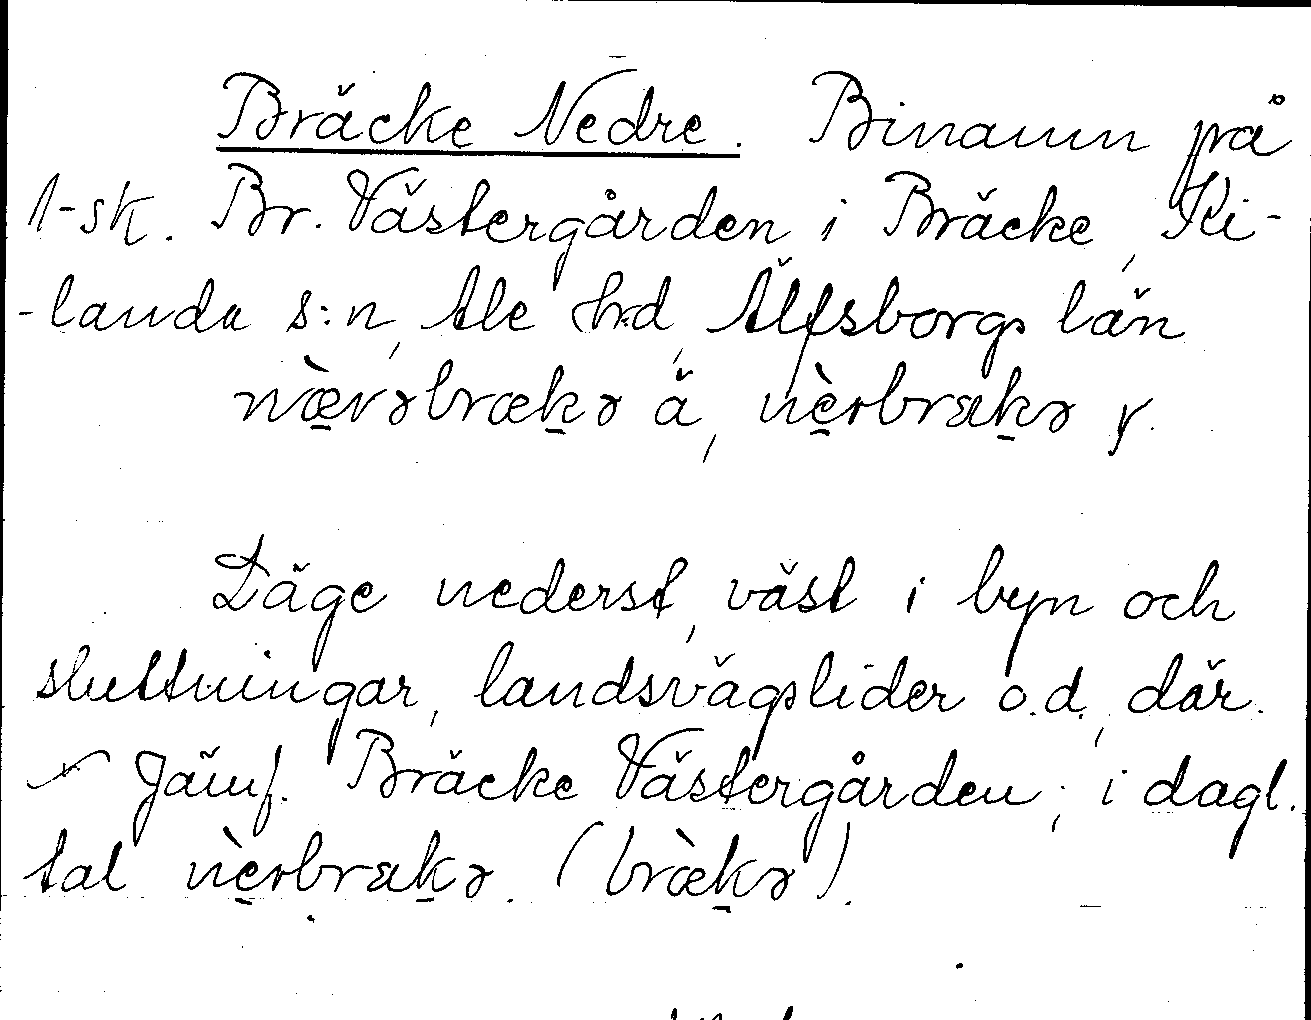 Bräcke Nedre. Binamn på
1-sk. Br. Västergården i Bräcke, Ki-
-landa s:n, Ale hd, Älfsborgs län
næ̀vrəbrækə ä, nèrbrækə y.
Läge nederst, väst i byn och
sluttningar, landsvägslider o.d., där.
Jämf. Bräcke Västergården; i dagl.
tal nèrbrækə. (bræ̀kə).